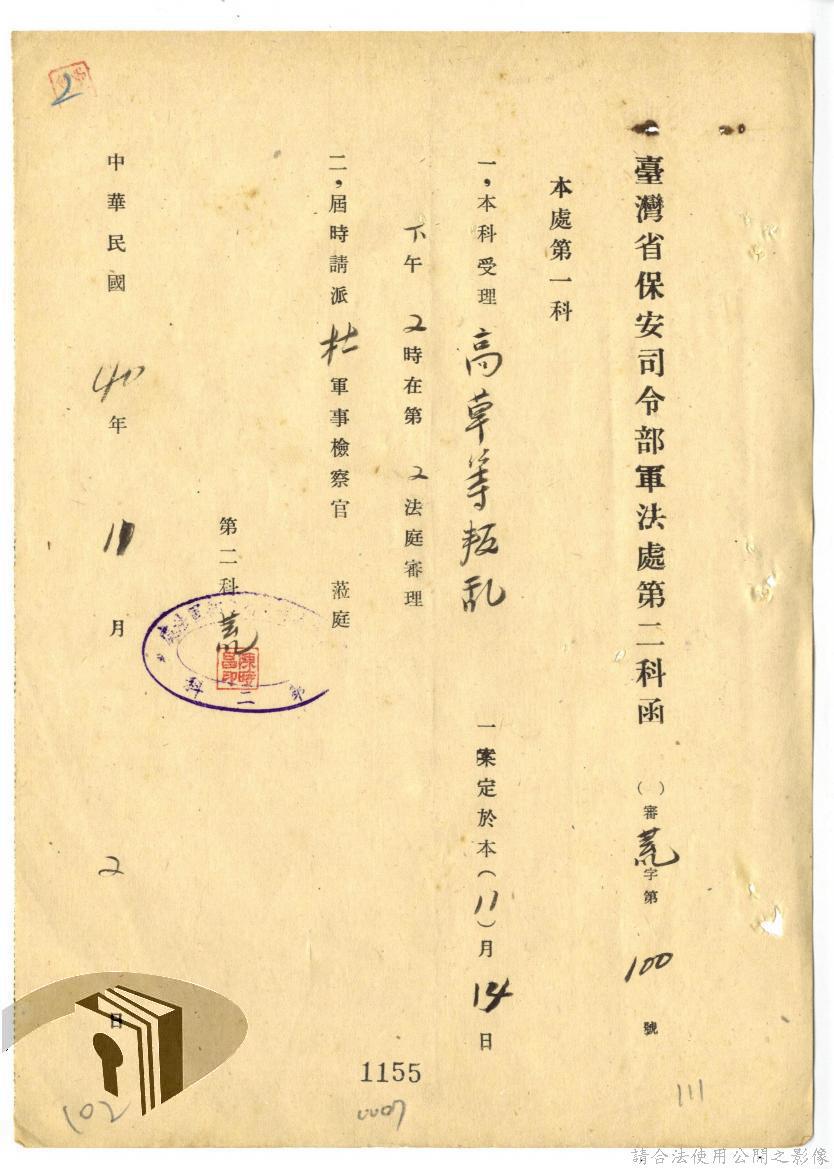 臺灣省保安司令部軍法處第二科函 ( )審荒字第 100 號
本處第一科
一,本科受理 高草等叛乱 一案定於本(11)月 14 日
下午 2 時在第 2 法庭審理
二,屆時請派 杜 軍事檢察官 蒞庭
第二科 荒
第二科
中華民國 40 年 11 月 2 日
2
1155
0007
102
111
請合法使用公開之影像